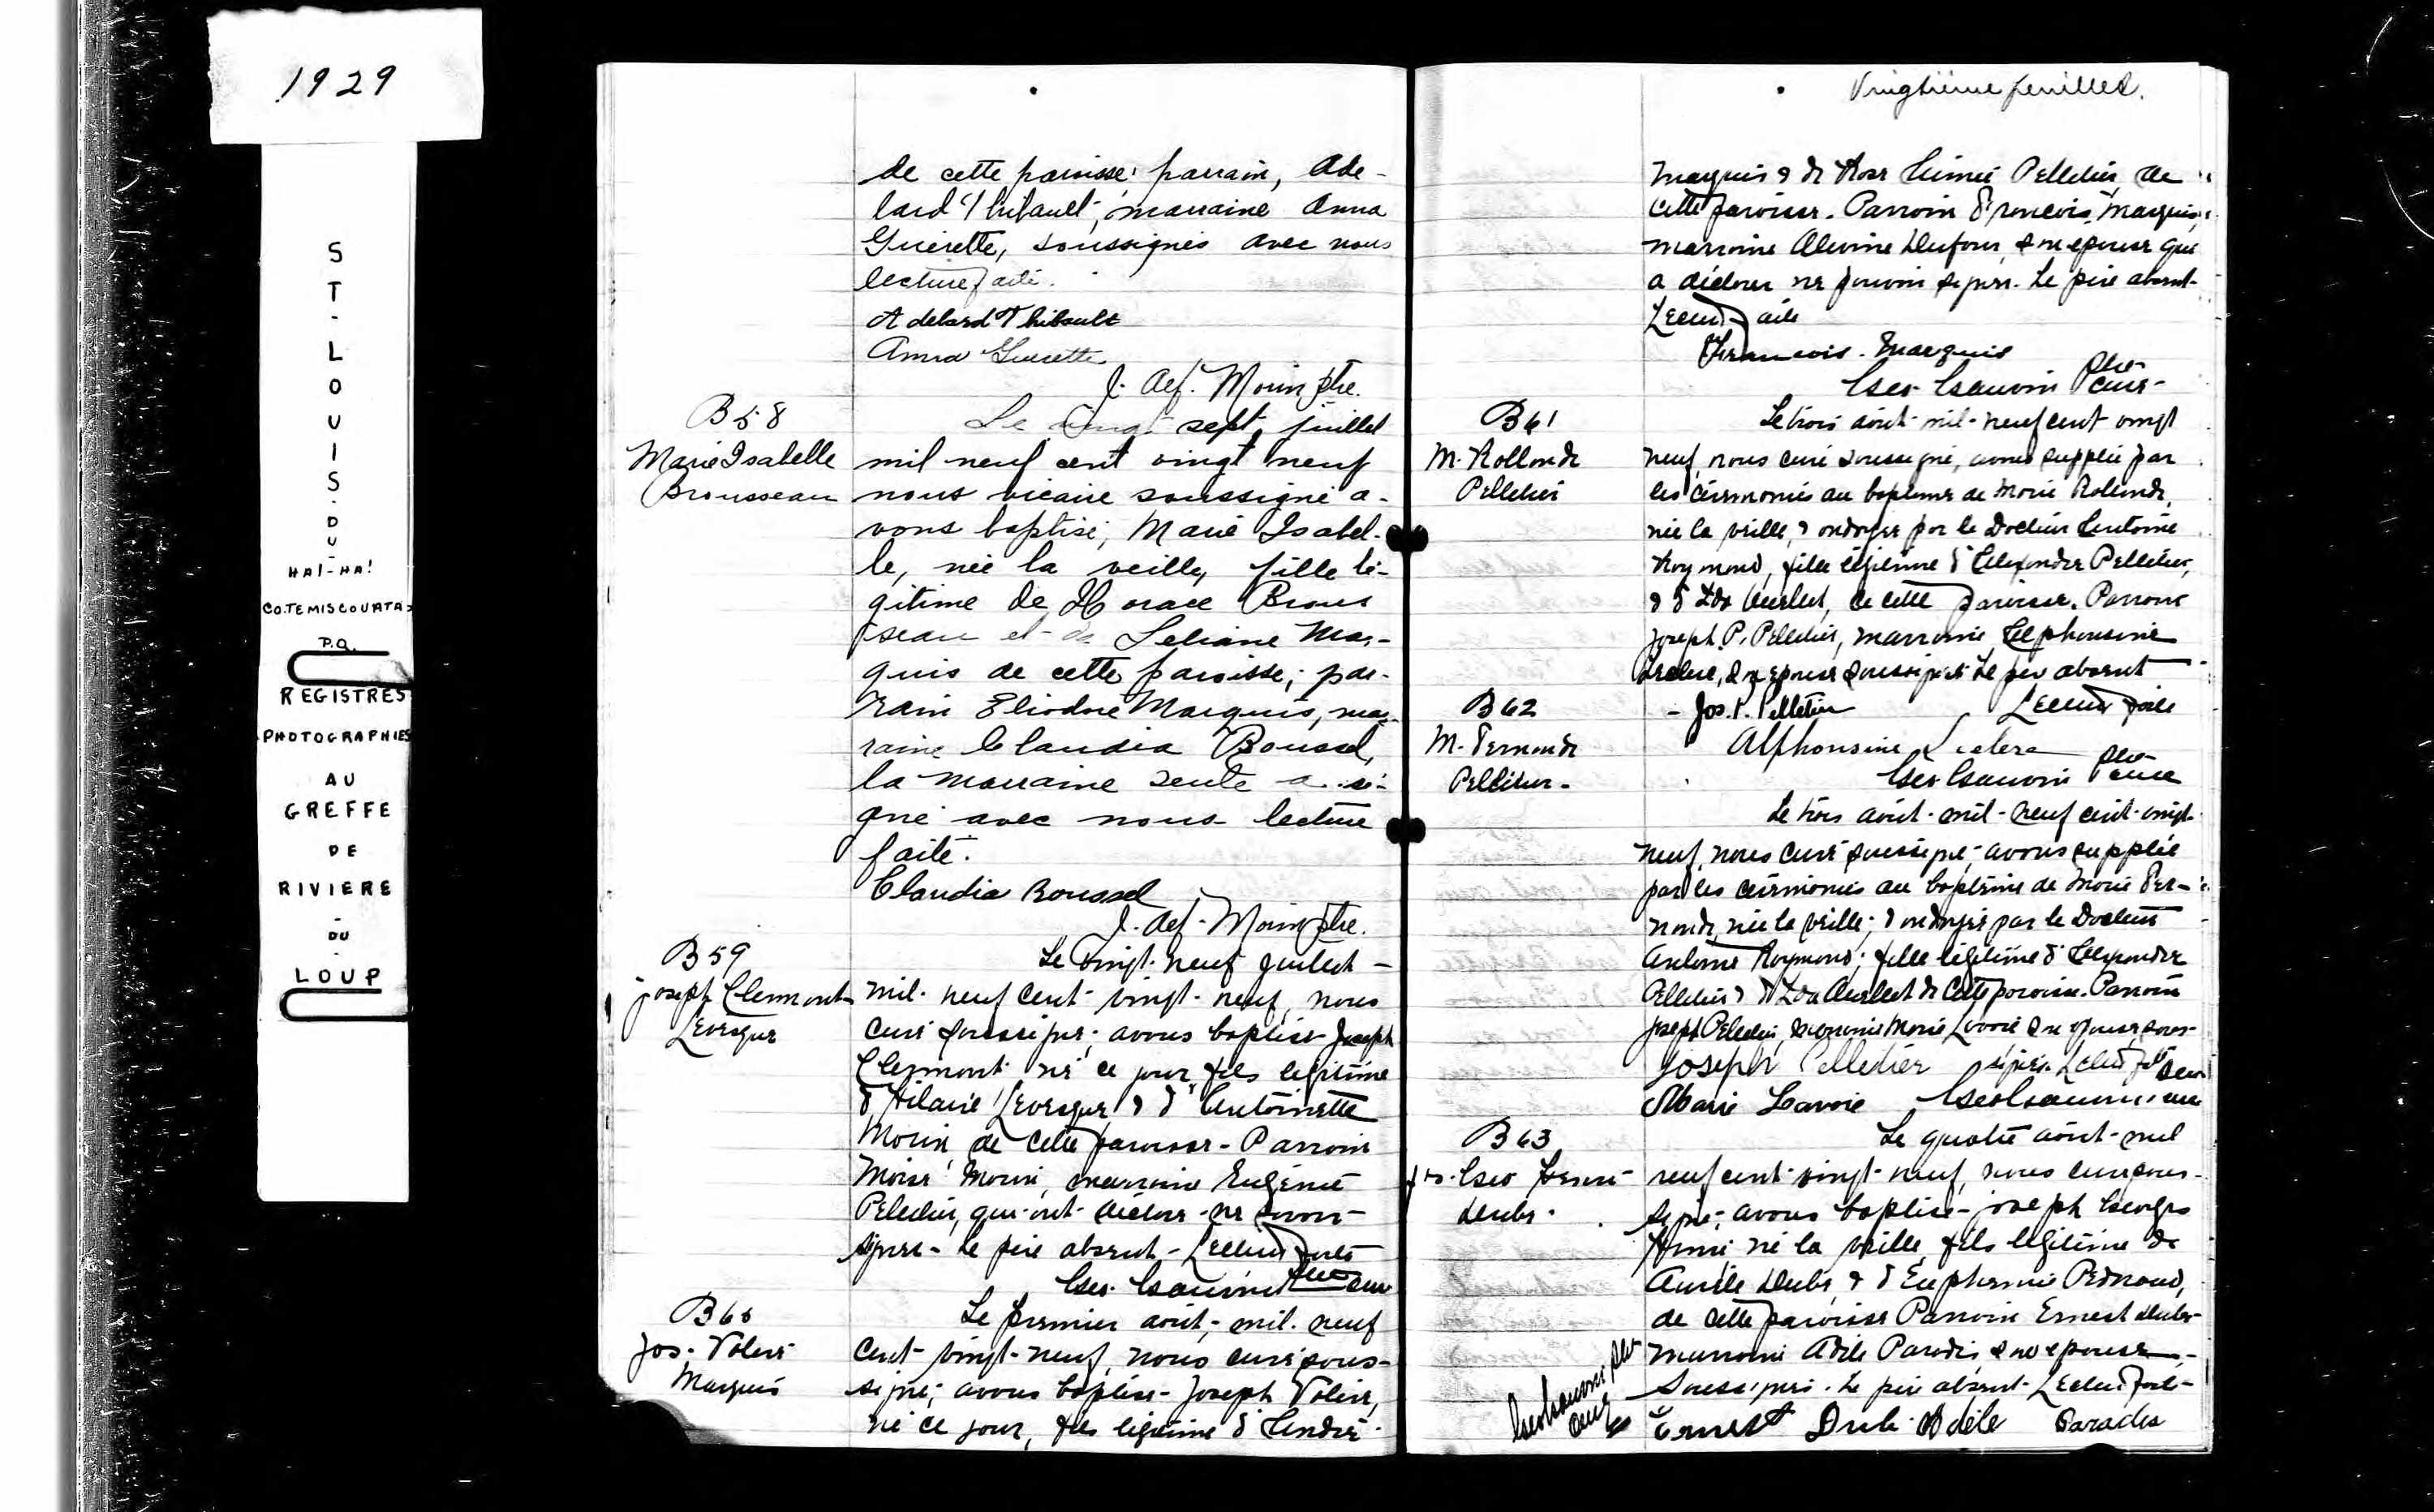 1929
ST-LOUIS-DU-
HA!-HA!
CO.TEMISCOUATA
P.Q.
REGISTRES
PHOTOGRAPHIES
AU
GREFFE
DE
RIVIERE
-DU-
LOUP
de cette paroisse; parrain, Ade-
lard Thibault, marraine Anna
Guérette, soussignés avec nous
lecture faite.
Adelard Thibault
Anna Guerette
J. Alf. Morin, ptre.
B58
Marie Isabelle
Brousseau
Le vingt sept juillet
mil neuf cent vingt neuf
nous vicaire soussigné a-
vons baptisé, Marie Isabel-
le, née la veille, fille lé-
gitime de Horace Brous
seau et de Leliane Mar-
quis de cette paroisse; par-
rain Eliodore Marquis, mar-
raine Claudia Roussel,
la marraine seule a si-
gné avec nous lecture
faite.
Claudia Roussel
J. Alf. Morin, ptre.
B59
Joseph Clermont
Levesque
Le vingt-neuf juillet
mil-neuf cent-vingt-neuf, nous
curé soussigné, avons baptisé Joseph
Clermont né ce jour, fils légitime
d'Hilaire Levesque, & d'Antoinette
Morin, de cette paroisse - Parrain
Moise Morin, marraine Eugénie
Pelletier, qui ont déclaré ne savoir
signer - Le père absent - Lecture faite
ptre curé
B60
Jos. Valère
Marquis
Le premier août, mil-neuf
cent-vingt-neuf, nous curé sous-
signé, avons baptisé Joseph Valère,
né ce jour, fils légitime d'André
Vingtième feuillet.
Marquis & de Rose Aimée Pelletier, de
cette paroisse. Parrain François Marquis,
marraine Alvine Dufour, son épouse qui
a déclaré ne pouvoir signer. Le père absent-
Lecture faite
Francois Marquis
ptre
curé
B61
M. Rollande
Pelletier
Le trois août-mil-neuf cent vingt
neuf, nous curé soussigné, avons suppléé par
les cérémonies au baptême de Marie Rolande,
née la veille, & ondoyée par le Docteur Antoine
Raymond, fille légitime d'Alexandre Pelletier,
& d'Ida Ouellet, de cette paroisse. Parrain
Joseph P. Pelletier, marraine, Alphonsine
Leclerc, son épouse soussignés Le père absent
Jos. P. Pelletier Lecture faite
Alphonsine Leclerc
ptre
curé
B62
M. Fernande
Pelletier
Le trois août-mil-neuf cent-vingt-
neuf, nous curé soussigné, avons suppléé
par les cérémonies au baptême de Marie Fer-
nande, née la veille, & ondoyée par le Docteur
Antoine Raymond; fille légitime d'Alexandre
Pelletier & d'Ida Ouellet de cette paroisse. Parrain
Joseph Pelletier, marraine Marie Lavoie son épouse, sous-
Joseph Pelletier signés. Lecture faite
Marie Lavoie curé
B63
Jos. Geo Henri
Dubé
Le quatre août-mil
neuf cent-vingt-neuf, nous curé sous-
signé, avons baptisé Joseph Georges
Henri né la veille, fils légitime de
Aurèle Dubé, & d'Euphémie Pednaud,
de cette paroisse Parrain Ernest Dubé
marraine Adèle Paradis, son épouse
Soussignés. Le père absent. Lecture faite
Ernest Dubé Adèle Paradis
ptre
curé